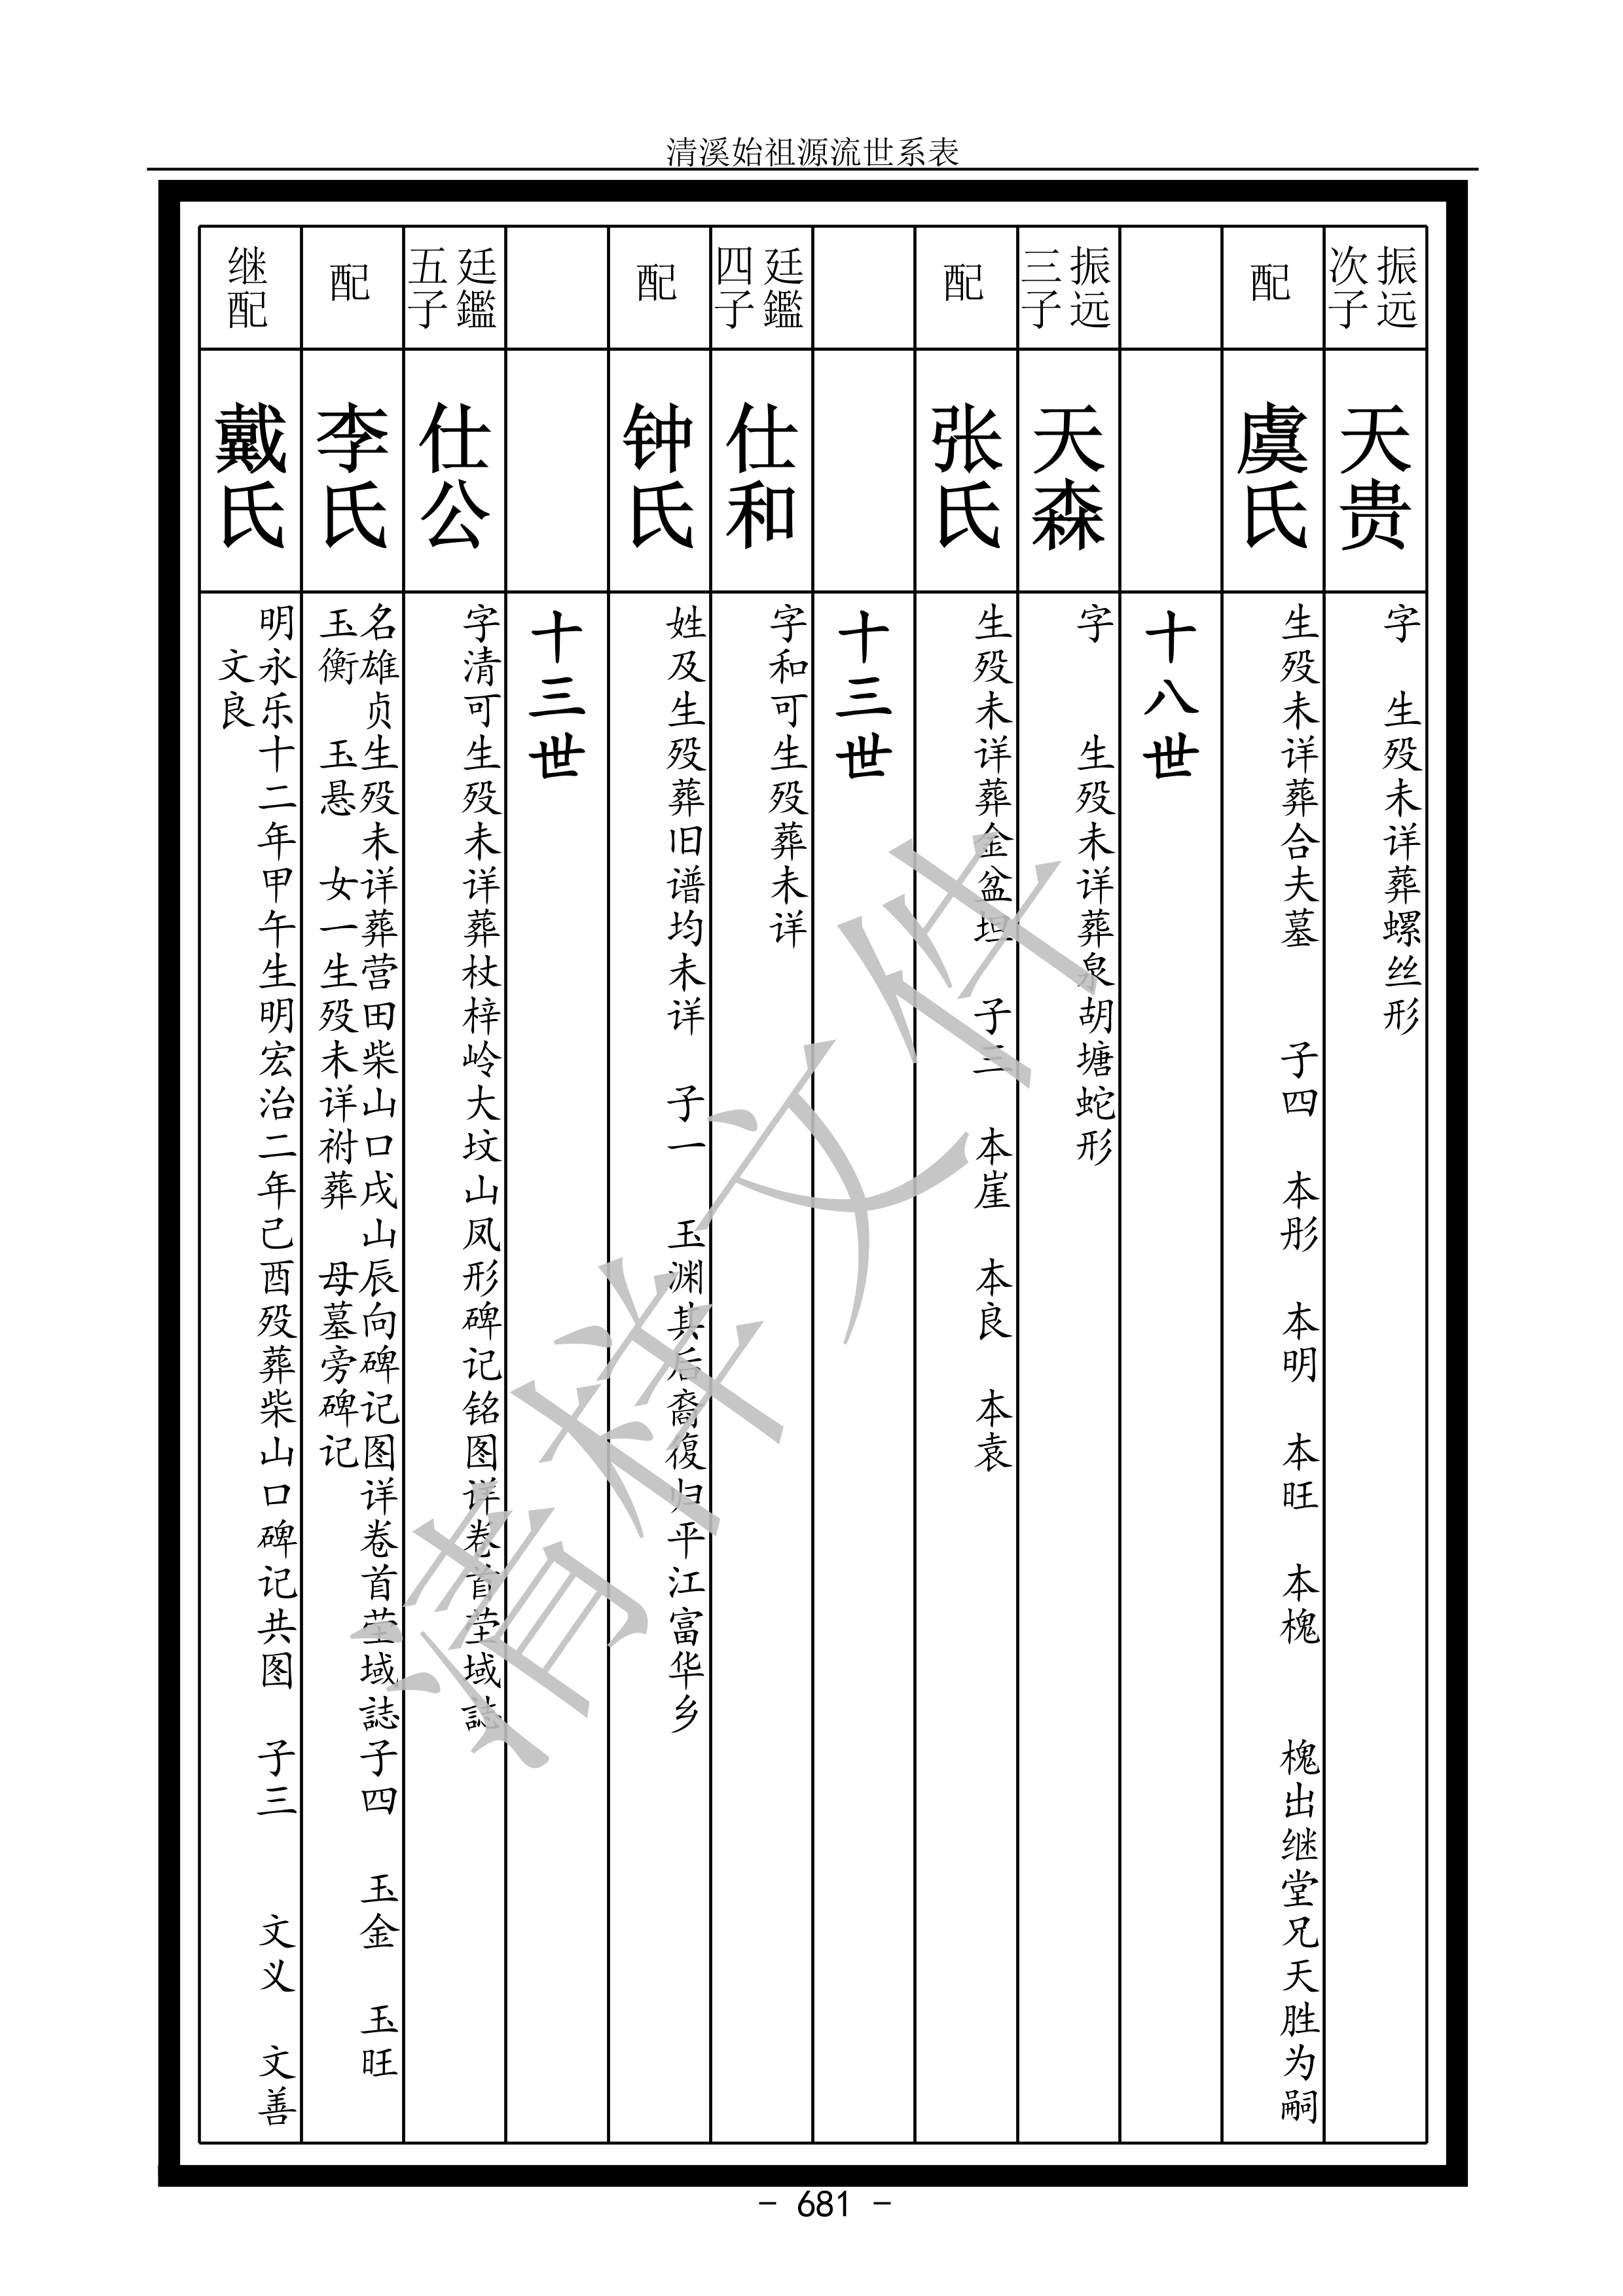 清溪始祖源流世系表
振远
次子
天贵
字　生殁未详葬螺丝形
配
虞氏
生殁未详葬合夫墓　　子四　本彤　本明　本旺　本槐　　槐出继堂兄天胜为嗣
十八世
振远
三子
天森
字　　生殁未详葬泉胡塘蛇形
配
张氏
生殁未详葬金盆坦　子三　本崖　本良　本袁
十三世
廷鑑
四子
仕和
字和可生殁葬未详
配
钟氏
姓及生殁葬旧谱均未详　子一　玉渊其后裔復归平江富华乡
十三世
廷鑑
五子
仕公
字清可生殁未详葬杖梓岭大坟山凤形碑记铭图详卷首茔域誌
配
李氏
名雄贞生殁未详葬营田柴山口戌山辰向碑记图详卷首茔域誌子四　玉金　玉旺
玉衡　玉悬　女一生殁未详祔葬　母墓旁碑记
继配
戴氏
明永乐十二年甲午生明宏治二年己酉殁葬柴山口碑记共图　子三　　文义　文善
文良
清样文件
- 681 -